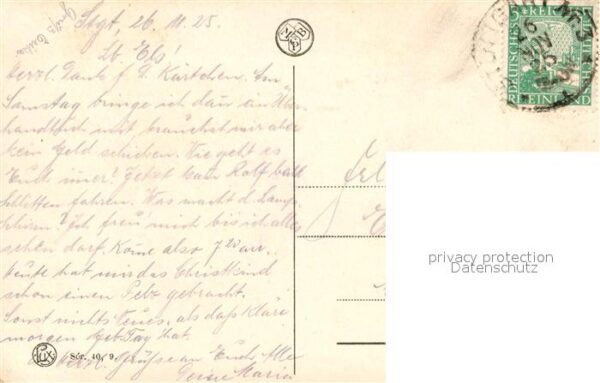 Stgt, 26. 11. 25.
Lb. Els!
Herzl. Dank f. d. Kärtchen. Am
Samstag bringe ich dann ein
handtuch mit brauchst mir aber
kein Geld schicken. Wie geht es
Euch immer! Jetzt kann Rolf bald
Schlitten fahren. Was macht d. Lamp.
schirm? Ich freu mich bis ich alles
sehen darf. Komme also 7 20
heute hat mir das Christkind
schon einen Pelz gebracht.
Sonst nichts Neues, als daß Kläre
morgen Geb. Tag hat.
Herzl. Grüße an Euch Alle
Deine Maria
Gruß
M B
P
Lux
Sér. 40, 9.
DEUTSCHES REICH
5 5
RHEINLAND
STUTTGART Nr. 3
privacy protection
Datenschutz